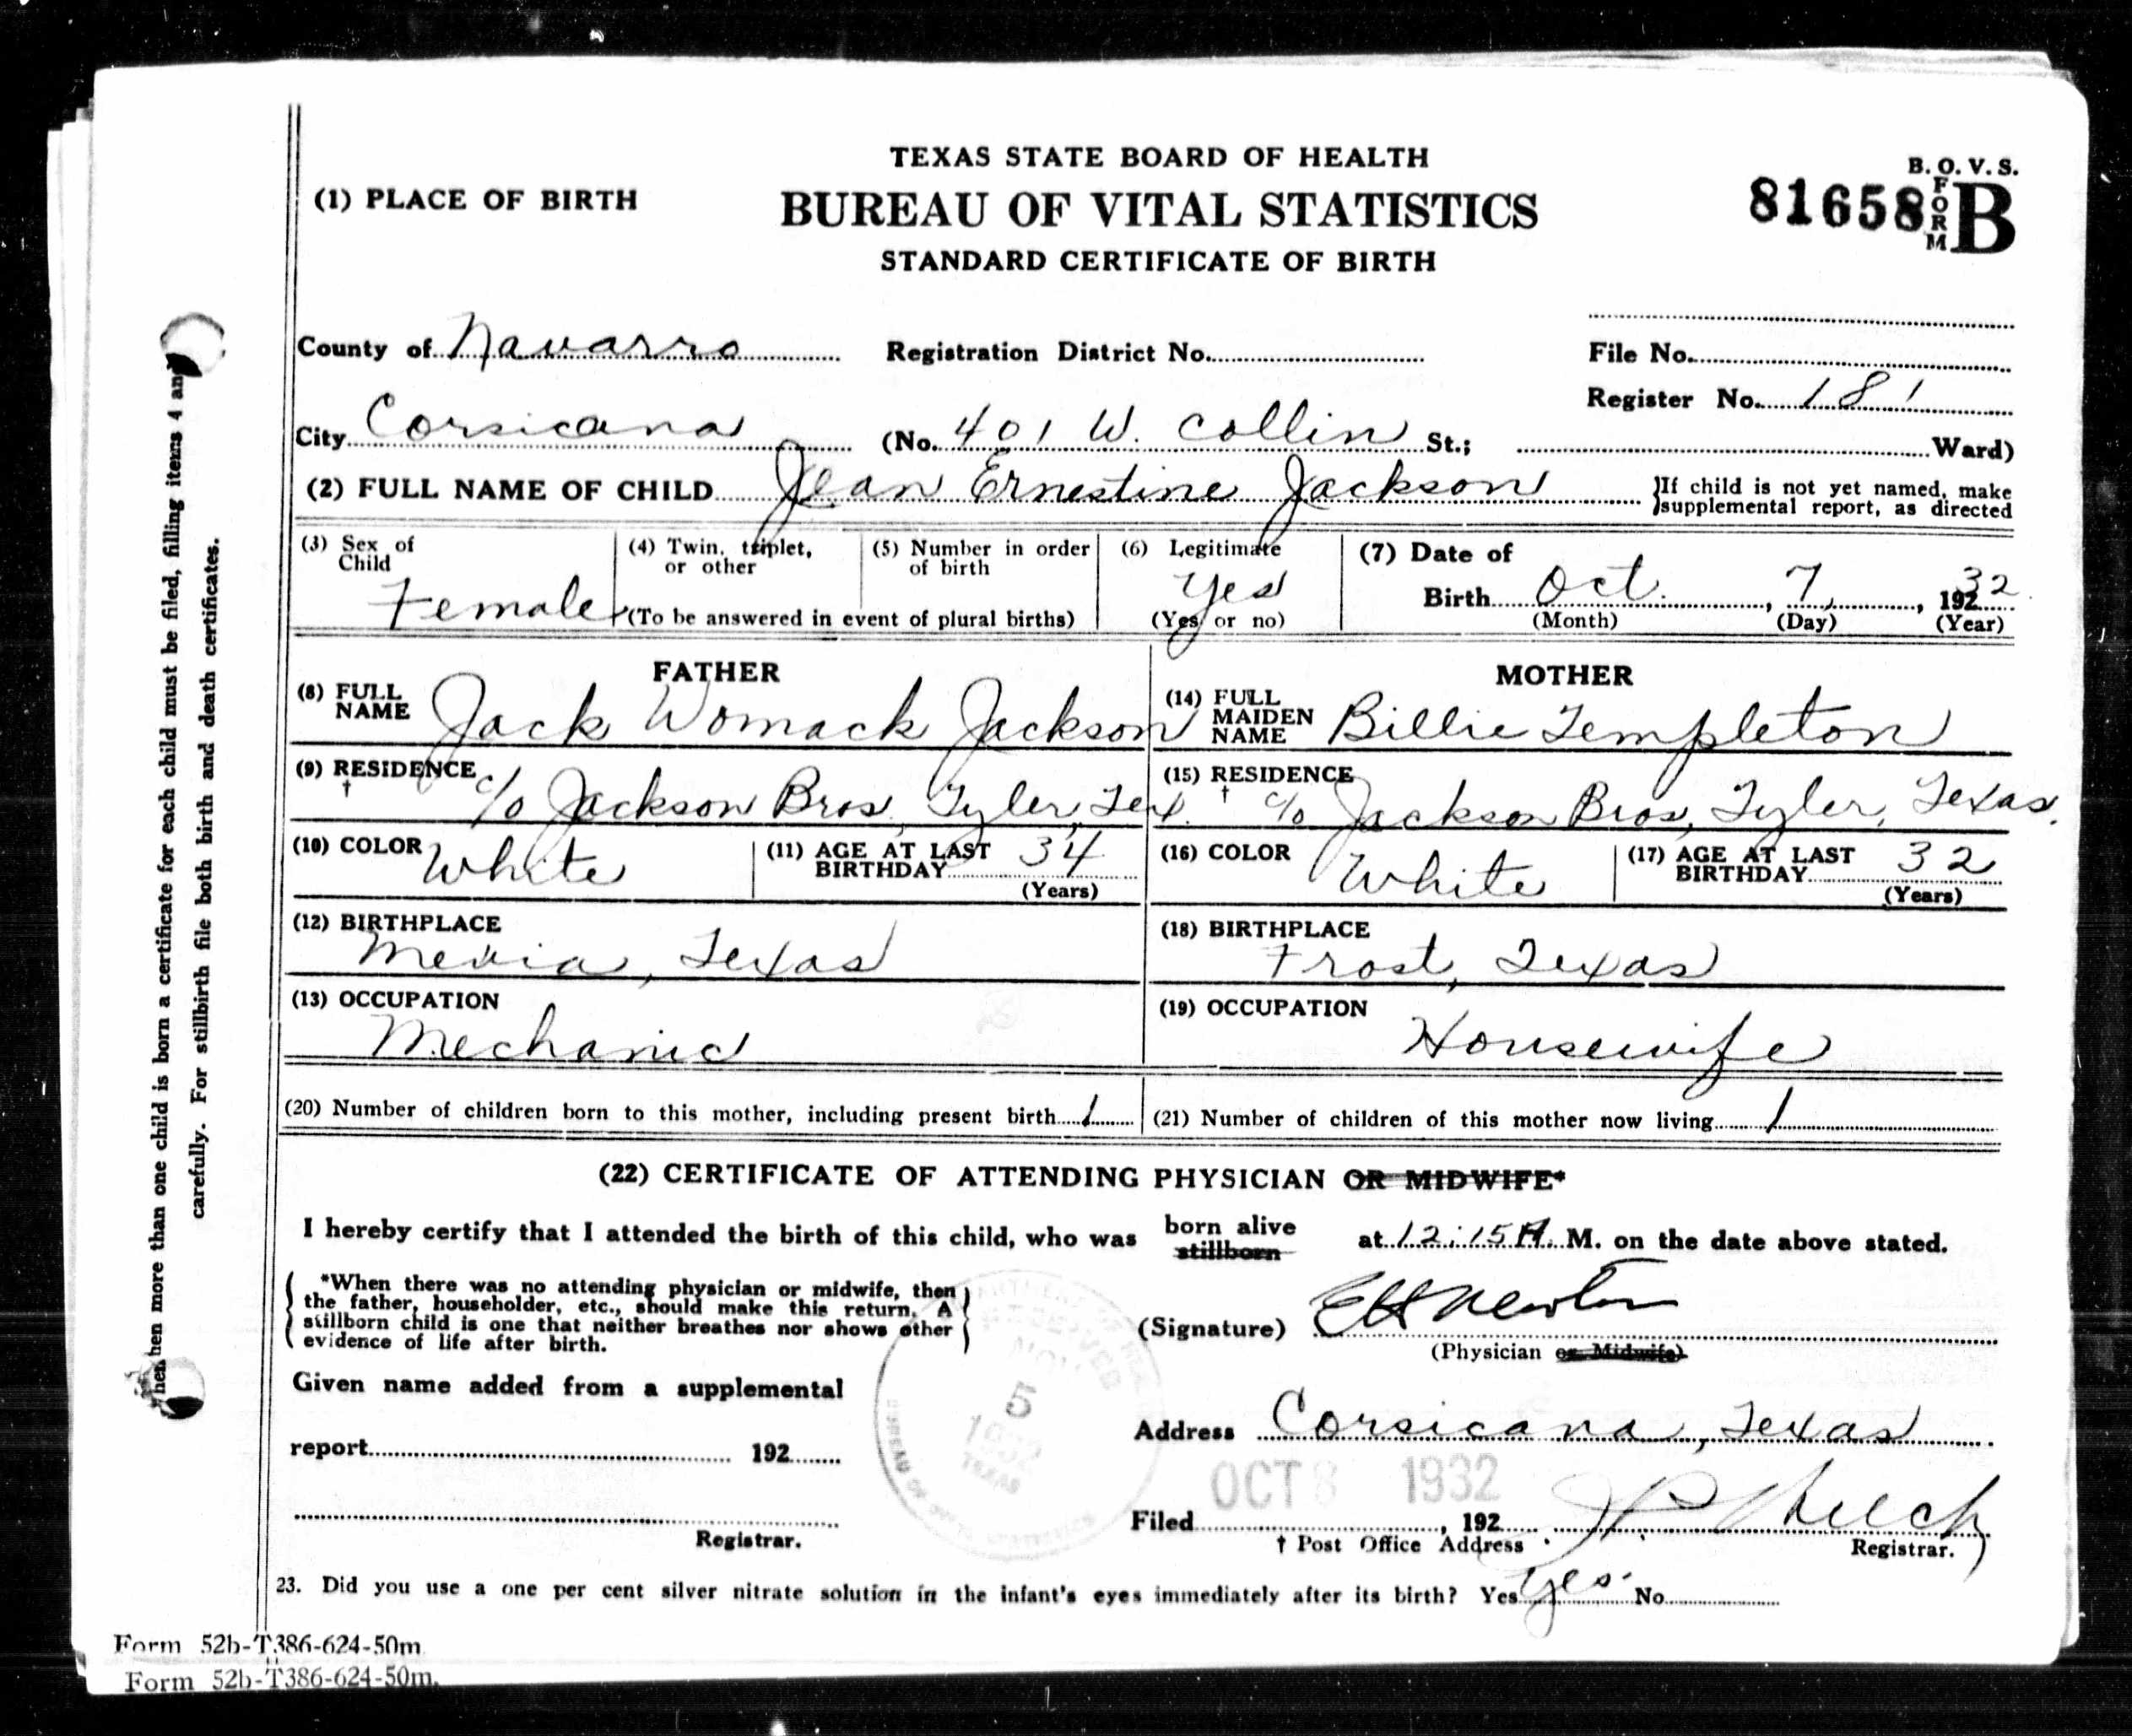 TEXAS STATE BOARD OF HEALTH
B. O. V. S.
(1) PLACE OF BIRTH
BUREAU OF VITAL STATISTICS
81658 FORM B
STANDARD CERTIFICATE OF BIRTH
County of Navarro Registration District No. File No.
Register No. 181
City Corsicana (No. 401 W. Collin St.; Ward)
(2) FULL NAME OF CHILD Jean Ernestine Jackson }If child is not yet named, make
}supplemental report, as directed
(3) Sex of Child Female
(4) Twin, triplet, or other
(5) Number in order of birth
(To be answered in event of plural births)
(6) Legitimate Yes
(Yes or no)
(7) Date of
Birth Oct. , 7, , 192 32
(Month) (Day) (Year)
FATHER
(8) FULL NAME Jack Womack Jackson
(9) RESIDENCE † c/o Jackson Bros, Tyler, Tex.
(10) COLOR White (11) AGE AT LAST BIRTHDAY 34
(Years)
(12) BIRTHPLACE
Mexia, Texas
(13) OCCUPATION
Mechanic
MOTHER
(14) FULL MAIDEN NAME Billie Templeton
(15) RESIDENCE † c/o Jackson Bros, Tyler, Texas.
(16) COLOR White (17) AGE AT LAST BIRTHDAY 32
(Years)
(18) BIRTHPLACE
Frost, Texas
(19) OCCUPATION
Housewife
(20) Number of children born to this mother, including present birth 1 (21) Number of children of this mother now living 1
(22) CERTIFICATE OF ATTENDING PHYSICIAN OR MIDWIFE*
I hereby certify that I attended the birth of this child, who was born alive stillborn at 12:15 A. M. on the date above stated.
*When there was no attending physician or midwife, then
the father, householder, etc., should make this return. A
stillborn child is one that neither breathes nor shows other
evidence of life after birth.
(Signature) EH Newton
(Physician or Midwife)
Given name added from a supplemental
report 192
Registrar.
NOV
5
1932
TEXAS
Address Corsicana, Texas
OCT 8 1932
Filed , 192
† Post Office Address Registrar.
23. Did you use a one per cent silver nitrate solution in the infant's eyes immediately after its birth? Yes yes. No
Form 52b-T386-624-50m
Form 52b-T386-624-50m.
hen more than one child is born a certificate for each child must be filed, filling items 4 and
carefully. For stillbirth file both birth and death certificates.